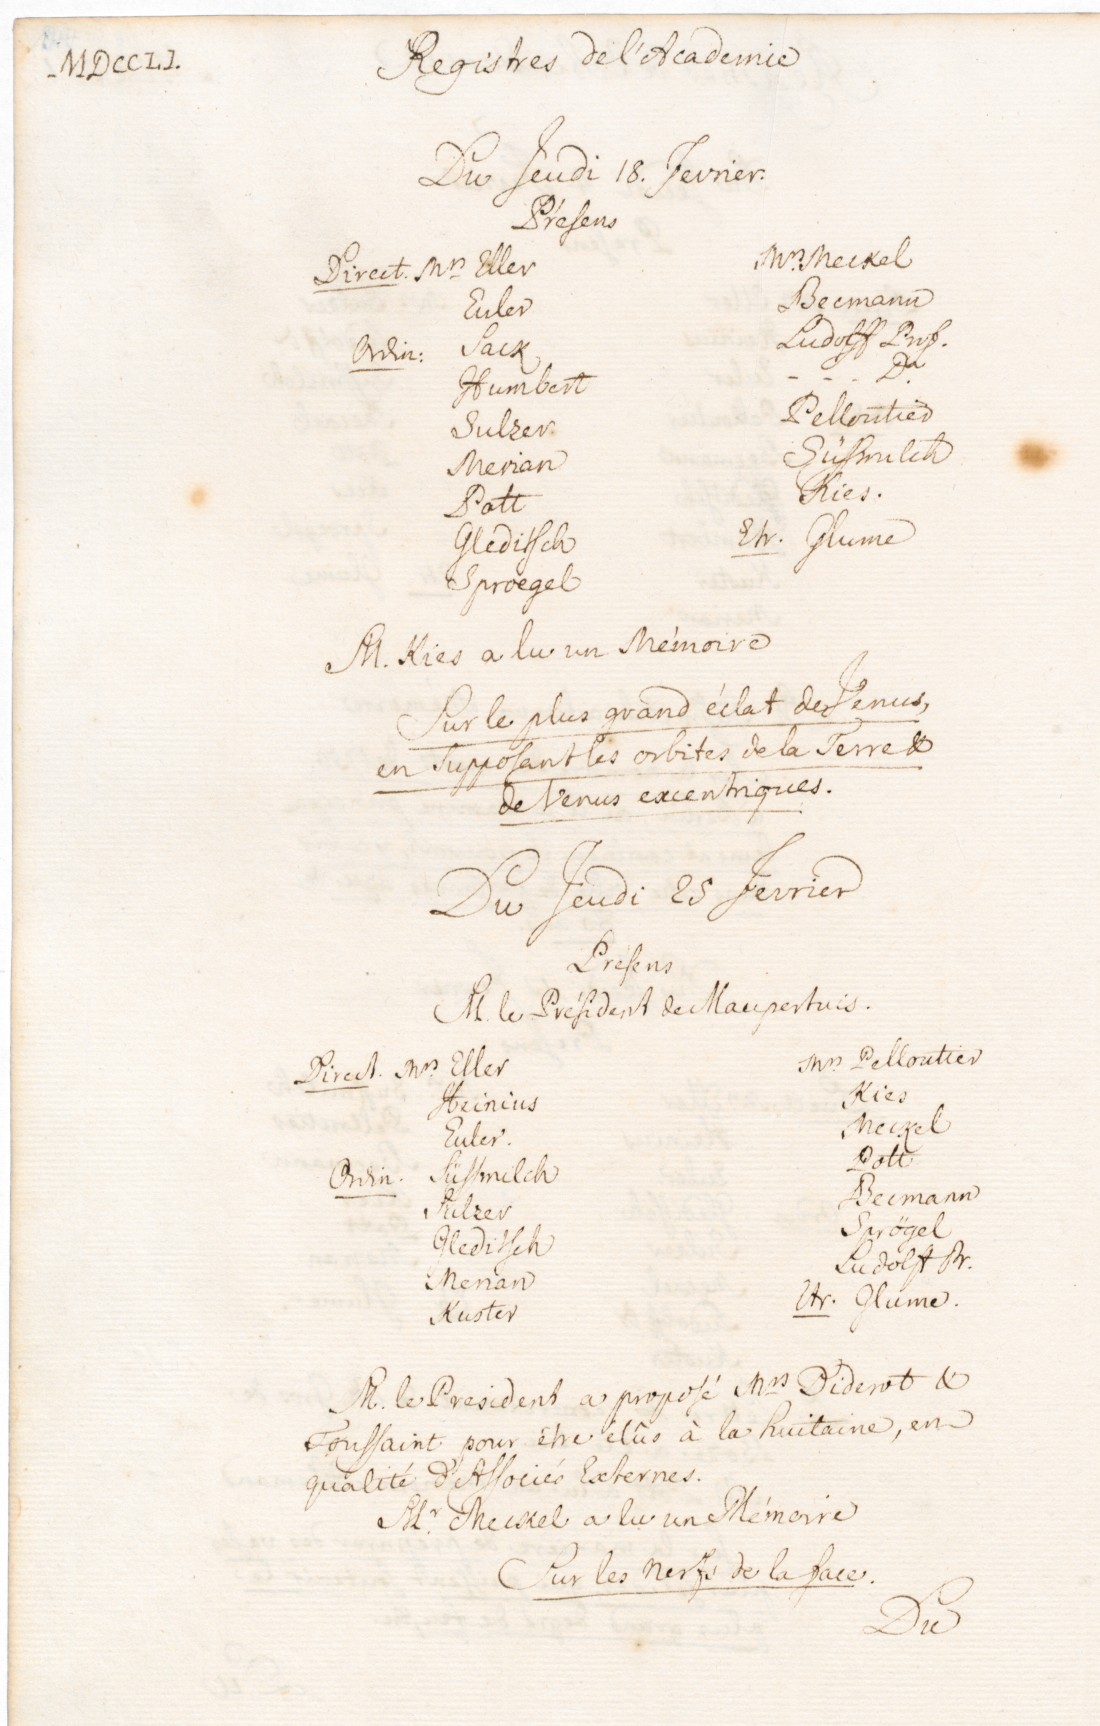 MDCCLI.
Registres de l'Academie
Du Jeudi 18. Fevrier.
Présens
Direct. Mrs Eller
Euler
Ordin: Sack
Humbert
Sulzer
Merian
Pott
Gleditsch
Sproegel
Mrs Meckel
Becmann
Ludolff Prof.
- - - Dr
Pelloutier
Süssmilch
Kies.
Etr. Glume
M. Kies a lu un Mémoire
Sur le plus grand éclat de Venus,
en supposant les orbites de la Terre &
de Venus excentriques.
Du Jeudi 25 Fevrier
Présens
M. le Président de Maupertuis.
Direct. Mrs Eller
Heinius
Euler.
Ordin. Süssmilch
Sulzer
Gleditsch
Merian
Kuster
Mrs Pelloutier
Kies
Meckel
Pott
Becmann
Sprögel
Ludolff Pr.
Etr. Glume.
M. le President a proposé Mrs Diderot &
Toussaint pour être elûs à la huitaine, en
qualité d'Associés Externes.
Mr. Meckel a lu un Mémoire
Sur les nerfs de la face.
Du